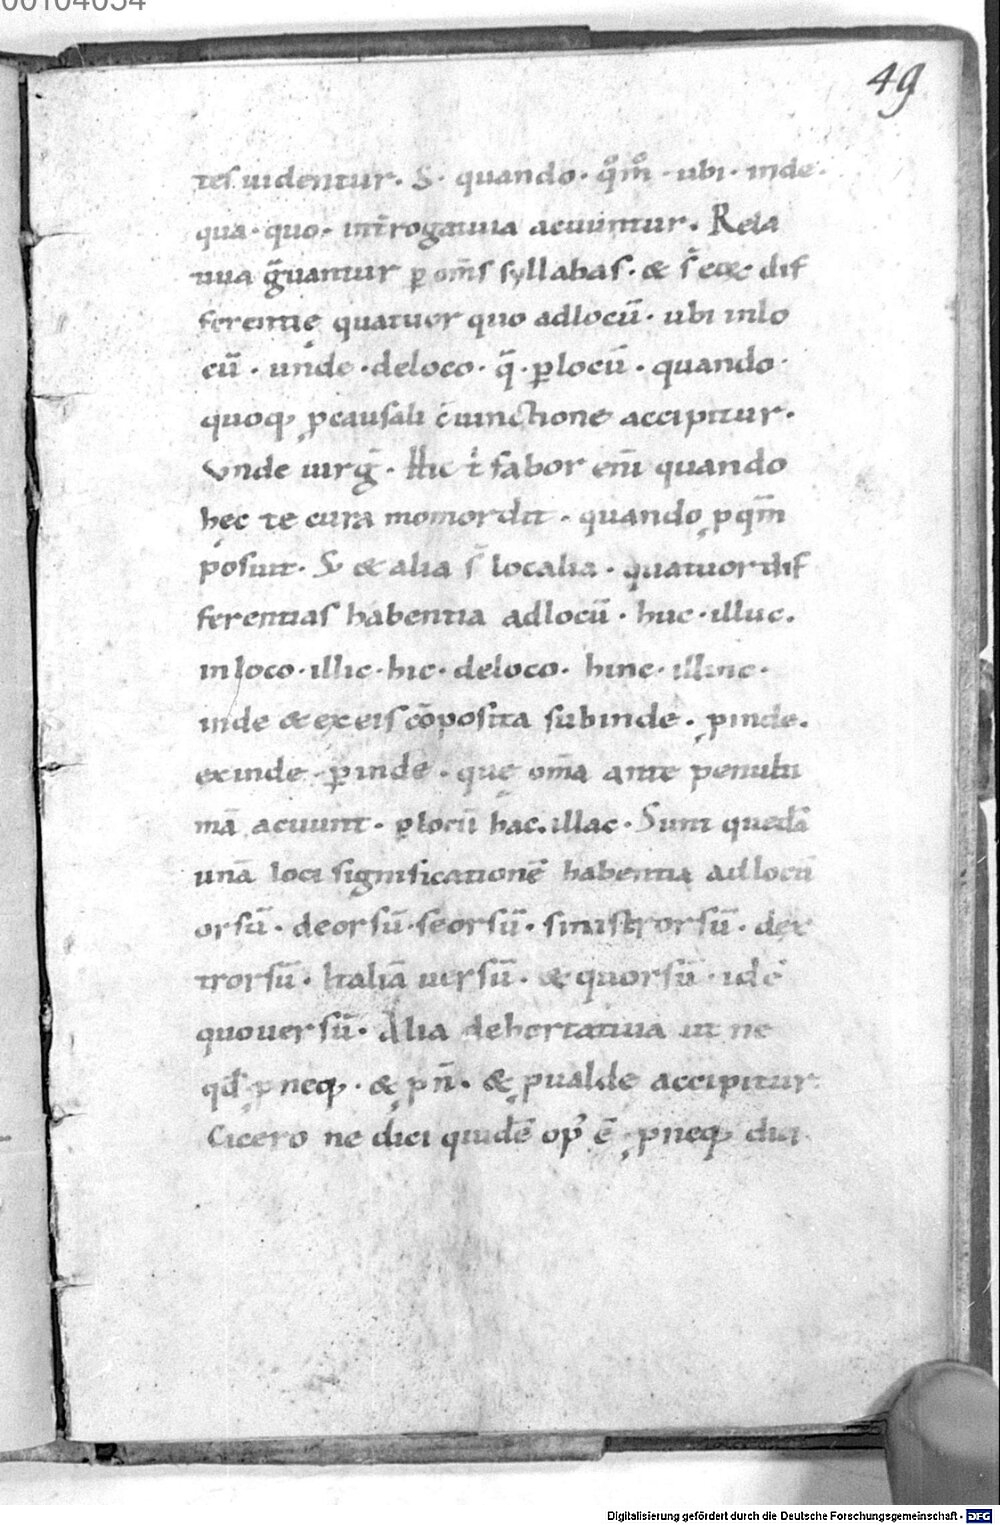 00104034
49
tes uidentur. S. quando. qͦmͦ. ubi. inde.
qua. quo. int̄rogatiua acuuntur. Rela
tiua g̃uantur ꝑ om̄s syllabas. & s̄ eoꝝ dif
ferentię quatuor quo adlocū. ubi inlo
cū. unde. deloco. q̃. ꝑlocū. quando.
quoq; ꝓcausali c̄iunctione accipitur.
Vnde uirg̃. Hic t̄ fabor enī quando
hęc te cura momordit. quando ꝓ qm̄
posuit. S & alia s̄ localia. quatuordif
ferentias habentia adlocū. huc. illuc.
inloco. illic. hic. deloco. hinc. illinc.
inde & ex eis cōposita subinde. ꝓinde.
exinde. ꝑinde. quę om̄a ante penulti
mā acuunt. ꝑlocū hac. illac. Sunt quedā
unā loci significationē habentia adlocū
orsū. deorsū. seorsū. sinistrorsū. dex
trorsū. Italiā uersū. & quorsū. idē
quouersū. Alia dehortatiua ut ne
qd̄ ꝓ neq;. & ꝓ n̄. & ꝓ ualde accipitur
Cicero ne dici quidē opꝰ ē ꝓ neq; dici
Digitalisierung gefördert durch die Deutsche Forschungsgemeinschaft - DFG